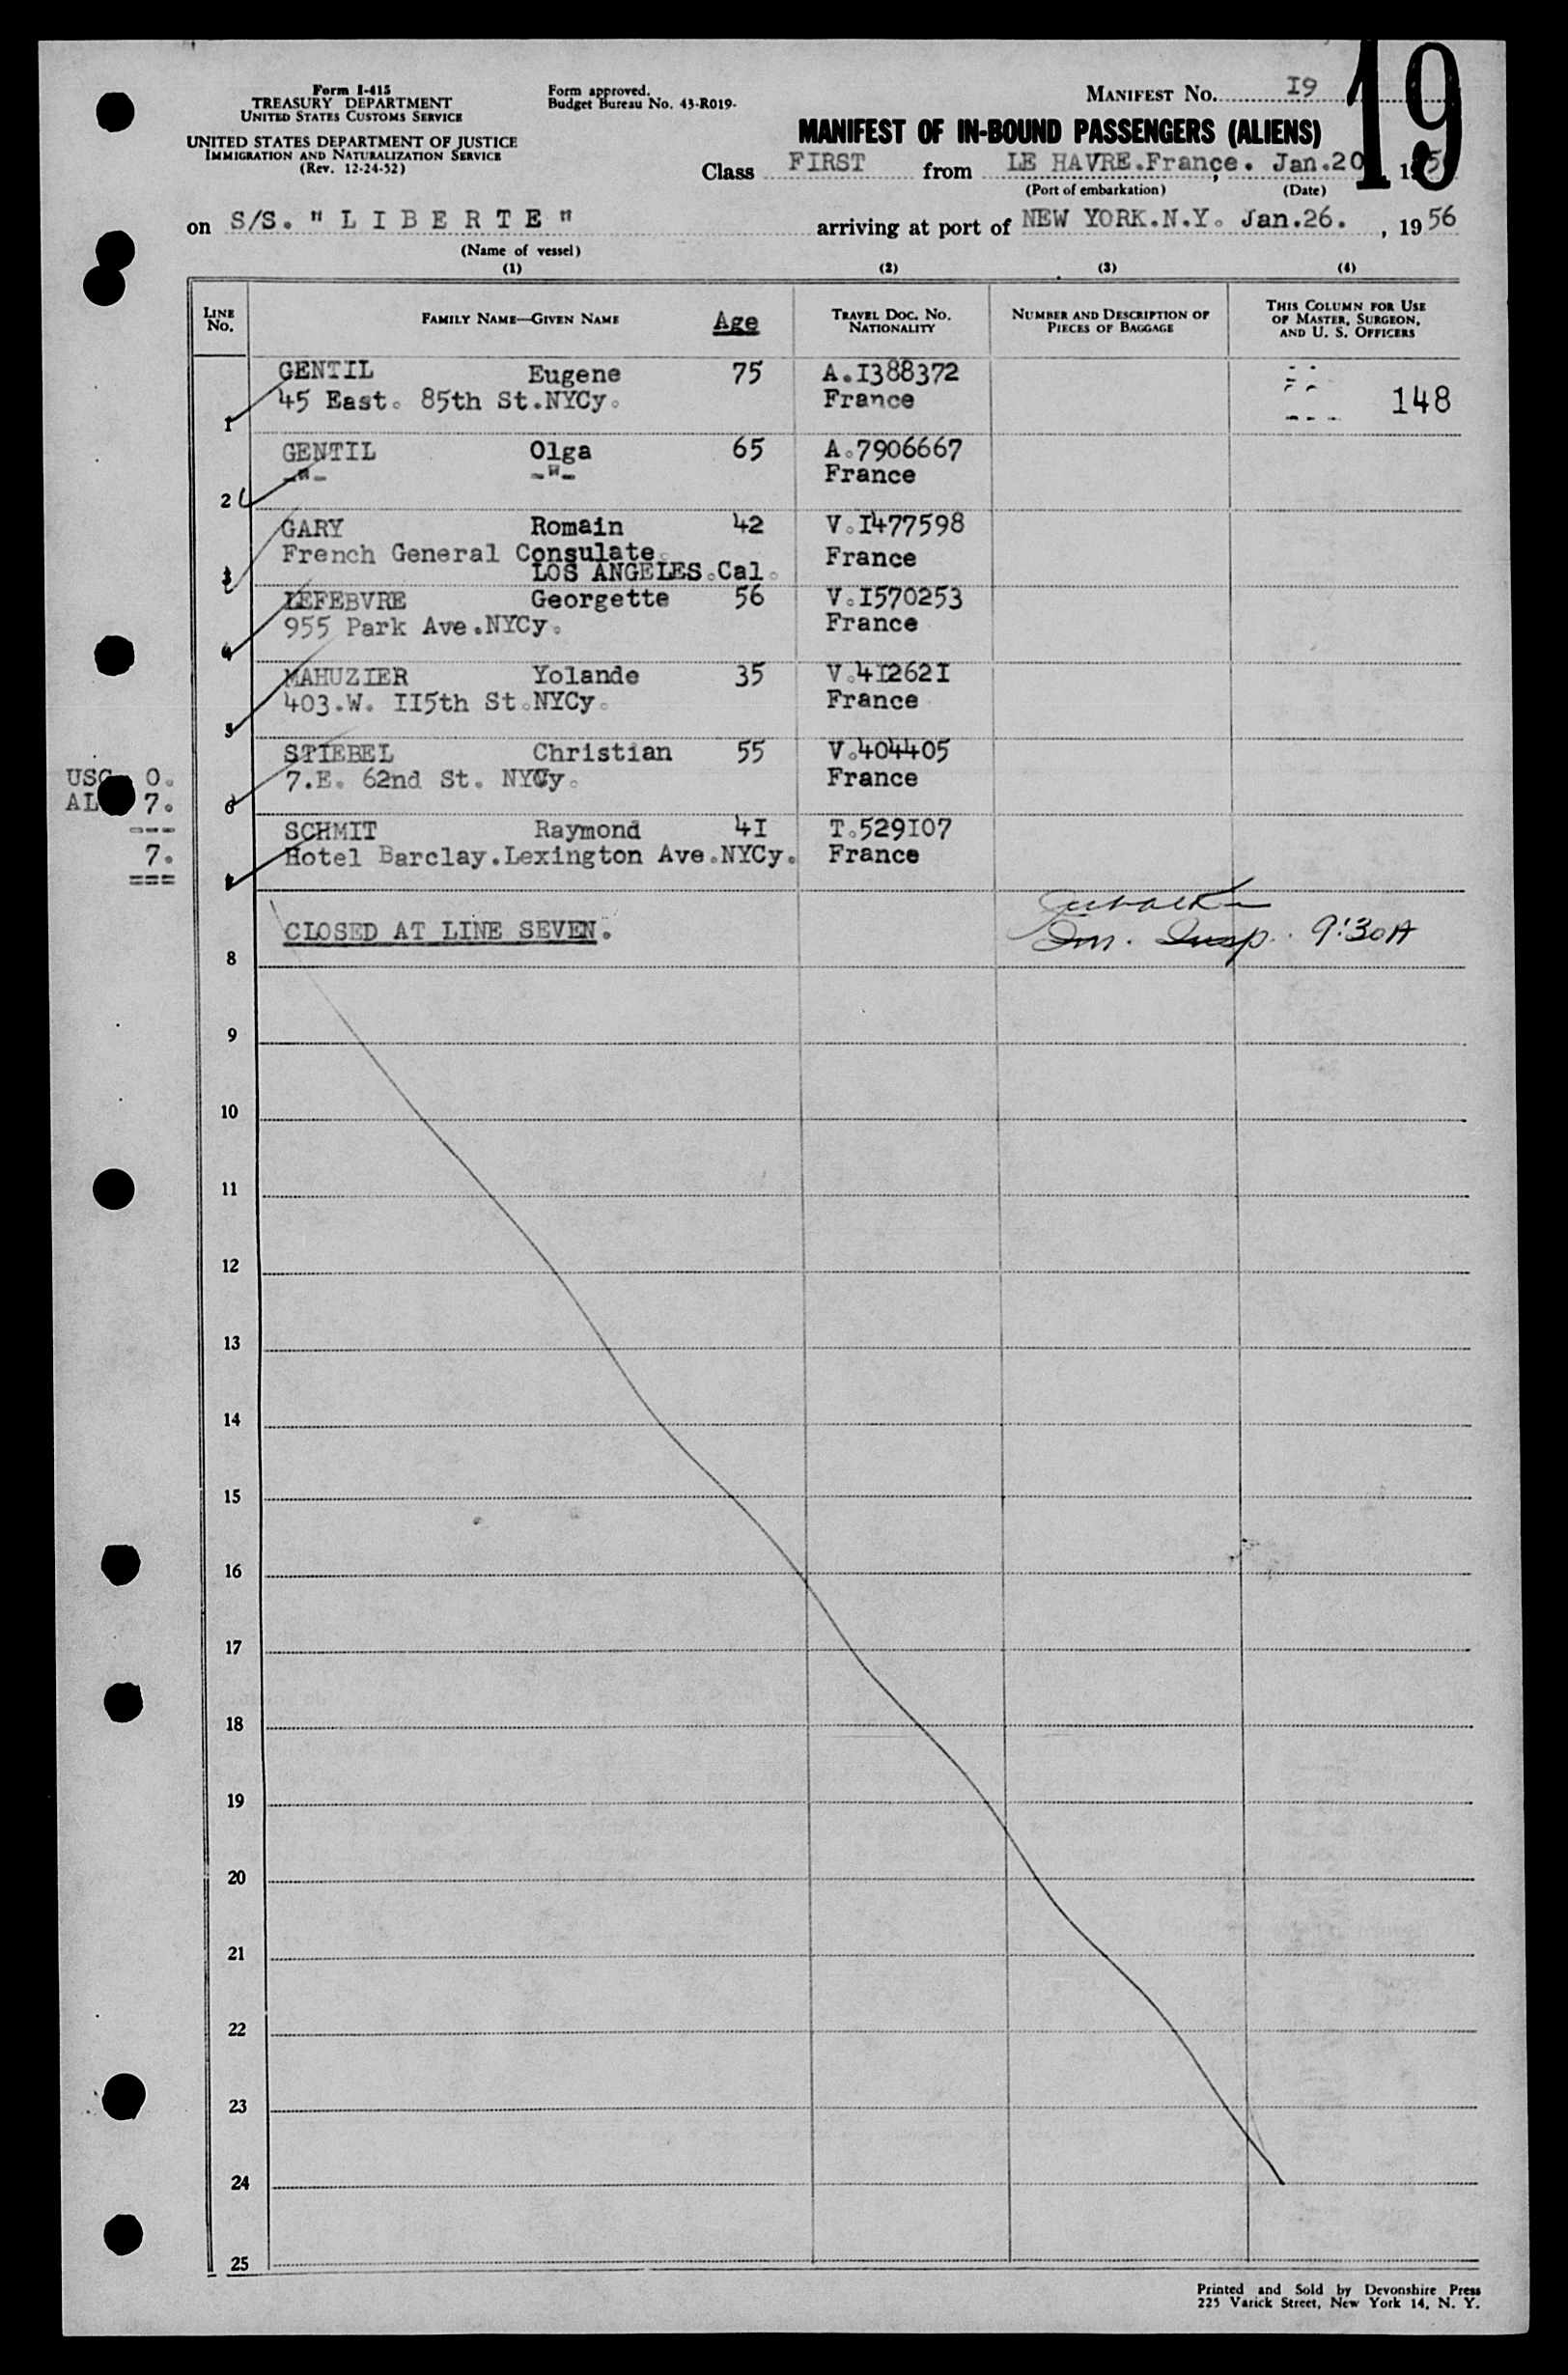 19
Form I-415
TREASURY DEPARTMENT
UNITED STATES CUSTOMS SERVICE
UNITED STATES DEPARTMENT OF JUSTICE
IMMIGRATION AND NATURALIZATION SERVICE
(Rev. 12-24-52)
Form approved.
Budget Bureau No. 43-R019-
MANIFEST NO. I9
MANIFEST OF IN-BOUND PASSENGERS (ALIENS)
Class FIRST from LE HAVRE.France. , Jan.20 , 195
(Port of embarkation) (Date)
on S/S. " L I B E R T E " arriving at port of NEW YORK.N.Y. Jan.26. , 19 56
(Name of vessel)
(1) (2) (3) (4)
LINE NO. FAMILY NAME—GIVEN NAME Age TRAVEL DOC. NO. NATIONALITY NUMBER AND DESCRIPTION OF PIECES OF BAGGAGE THIS COLUMN FOR USE OF MASTER, SURGEON, AND U. S. OFFICERS
GENTIL Eugene 75 A.I388372
45 East. 85th St.NYCy. France 148
1
GENTIL Olga 65 A.7906667
-"- -"- France
2
GARY Romain 42 V.I477598
French General Consulate. France
LOS ANGELES.Cal.
3
LEFEBVRE Georgette 56 V.I570253
955 Park Ave.NYCy. France
4
MAHUZIER Yolande 35 V.4I262I
403.W. II5th St.NYCy. France
5
STIEBEL Christian 55 V.404405
7.E. 62nd St. NYCy. France
6
SCHMIT Raymond 4I T.529I07
Hotel Barclay.Lexington Ave.NYCy. France
USC 0.
AL 7.
---
7.
===
CLOSED AT LINE SEVEN.
Im. Insp. 9:30A
8
9
10
11
12
13
14
15
16
17
18
19
20
21
22
23
24
25
Printed and Sold by Devonshire Press
225 Varick Street, New York 14, N. Y.